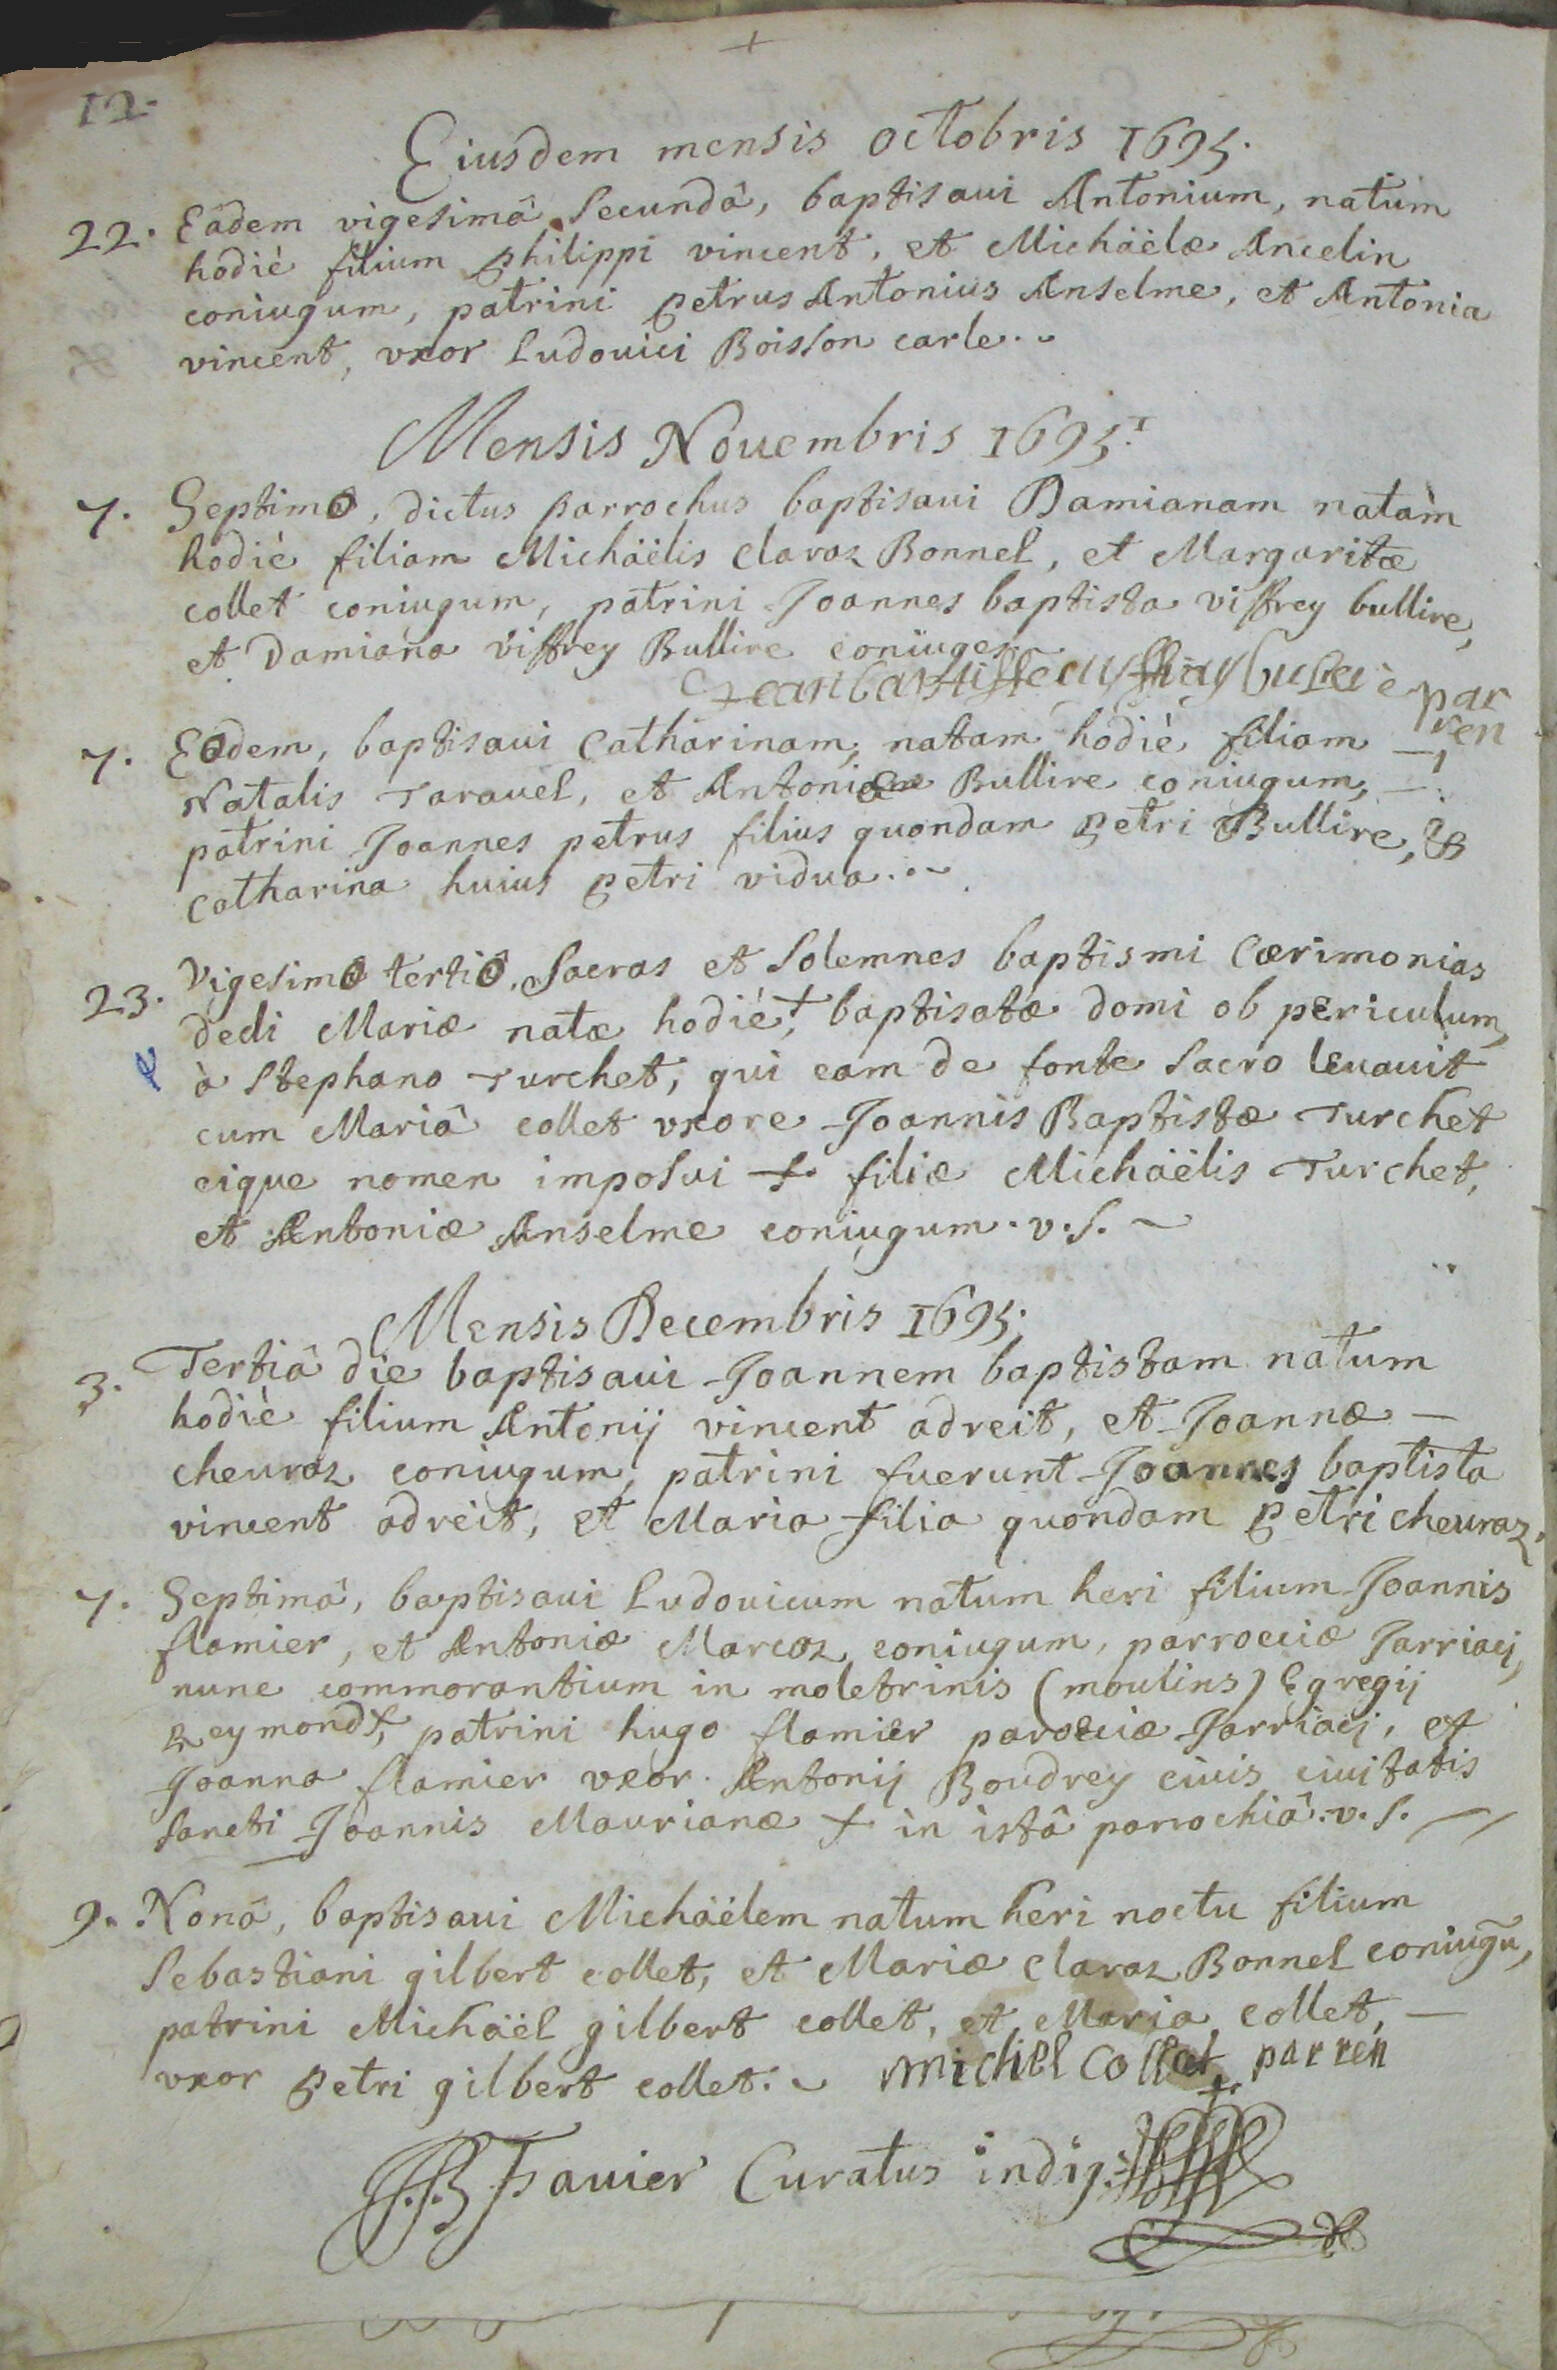 12.
Eiusdem mensis octobris 1695.
22. Eâdem vigesimâ secundâ, baptisaui Antonium, natum
hodiè filium philippi vincent, et Michäelæ Ancelin
coniugum, patrini petrus Antonius Anselme, et Antonia
vincent, vxor Ludouici Boisson carle.
Mensis Nouembris 1695.
7. Septimo, dictus parrochus baptisaui Damianam natam
hodiè filiam Michäëlis claraz Bonnel, et Margaritæ
collet coniugum, patrini Joannes baptista viffrey bullire,
et Damiana viffrey Bullire coniuges
par
ren
7. Eodem, baptisaui Catharinam, natam hodiè filiam —
Natalis Tarauel, et Antoniæ Bullire coniugum, —
patrini Joannes petrus filius quondam petri Bullire, &
catharina huius petri vidua..
23. Vigesimo tertio, sacras et solemnes baptismi cærimonias
dedi Mariæ natæ hodiè +, baptisatæ domi ob periculum,
à Stephano Turchet, qui eam de fonte sacro leuauit
cum Mariâ collet vxore Joannis Baptistæ Turchet
eique nomen imposui +. filiæ Michäëlis Turchet,
et Antoniæ Anselme coniugum. v. s. ~
Mensis Decembris 1695.
3. Tertiâ die baptisaui Joannem baptistam natum
hodiè filium Antonij vincent adreit, et Joannæ —
cheuraz coniugum, patrini fuerunt Joannes baptista
vincent adreit, et Maria filia quondam petri cheuraz.
7. Septimâ, baptisaui Ludouicum natum heri filium Joannis
flamier, et Antoniæ Marcoz coniugum, parrocciæ Jarriaci,
nunc commorantium in moletrinis (moulins) Egregij
Reymond +, patrini hugo flamier parocciæ Jarriaci, et
Joanna flamier vxor Antonij Boudrey ciuis ciuitatis
sancti Joannis Maurianæ + in istâ parrochiâ. v. s.
9. Nonâ, baptisaui Michäëlem natum heri noctu filium
Sebastiani gilbert collet, et Mariæ Claraz Bonnel coniugũ,
patrini Michäël gilbert collet, et Maria collet, —
vxor petri gilbert collet. ~ michel Collet parren
Fauier Curatus indig.